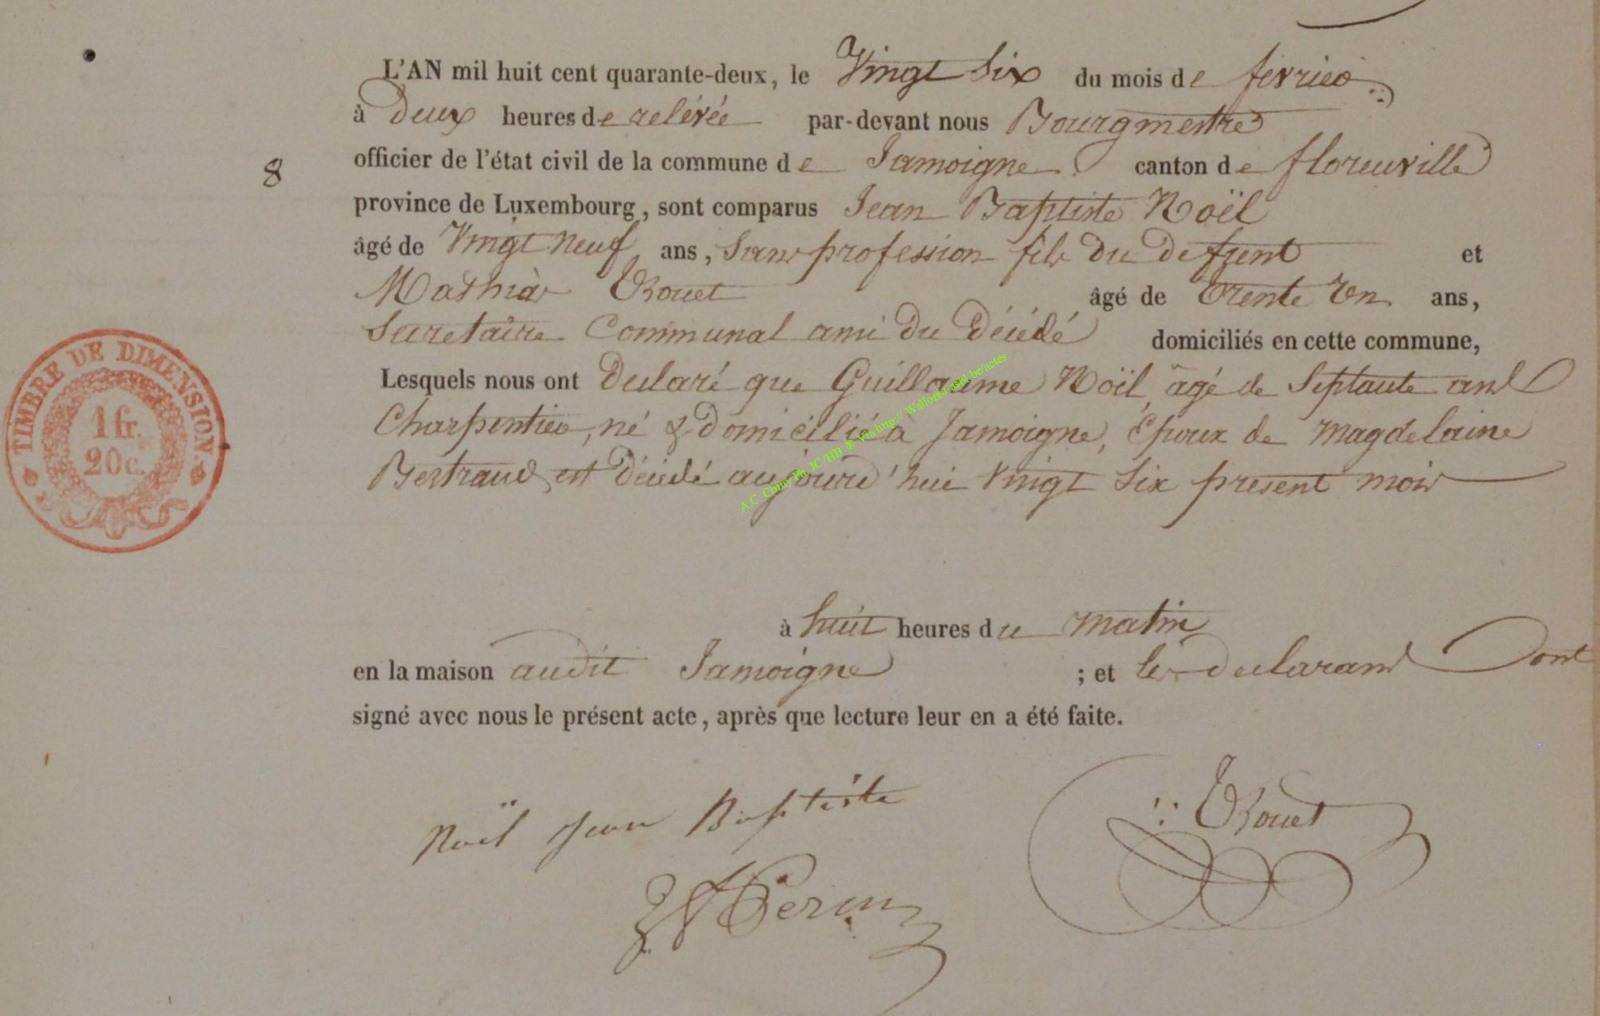 L'AN mil huit cent quarante-deux, le Vingt Six du mois de février
à Deux heures de relévée par-devant nous Bourgmestre
officier de l'état civil de la commune de Jamoigne canton de florenville
8
province de Luxembourg, sont comparus Jean Baptiste Noël
âgé de Vingt neuf ans, Sans profession fils du défunt et
Mathias Thouet âgé de trente Un ans,
Secretaire Communal ami du Décédé domiciliés en cette commune,
Lesquels nous ont Declaré que Guillaume Noël, âgé de Septante ans
Charpentier, né & domicilié à Jamoigne, Époux de Magdelaine
Bertrand, est Décédé aujourd'hui Vingt Six présent mois
à huit heures du matin
en la maison audit Jamoigne ; et les declarans Ont
signé avec nous le présent acte, après que lecture leur en a été faite.
TIMBRE DE DIMENSION
1 fr.
20c.
Noël Jean Baptiste
Thouet
Perin